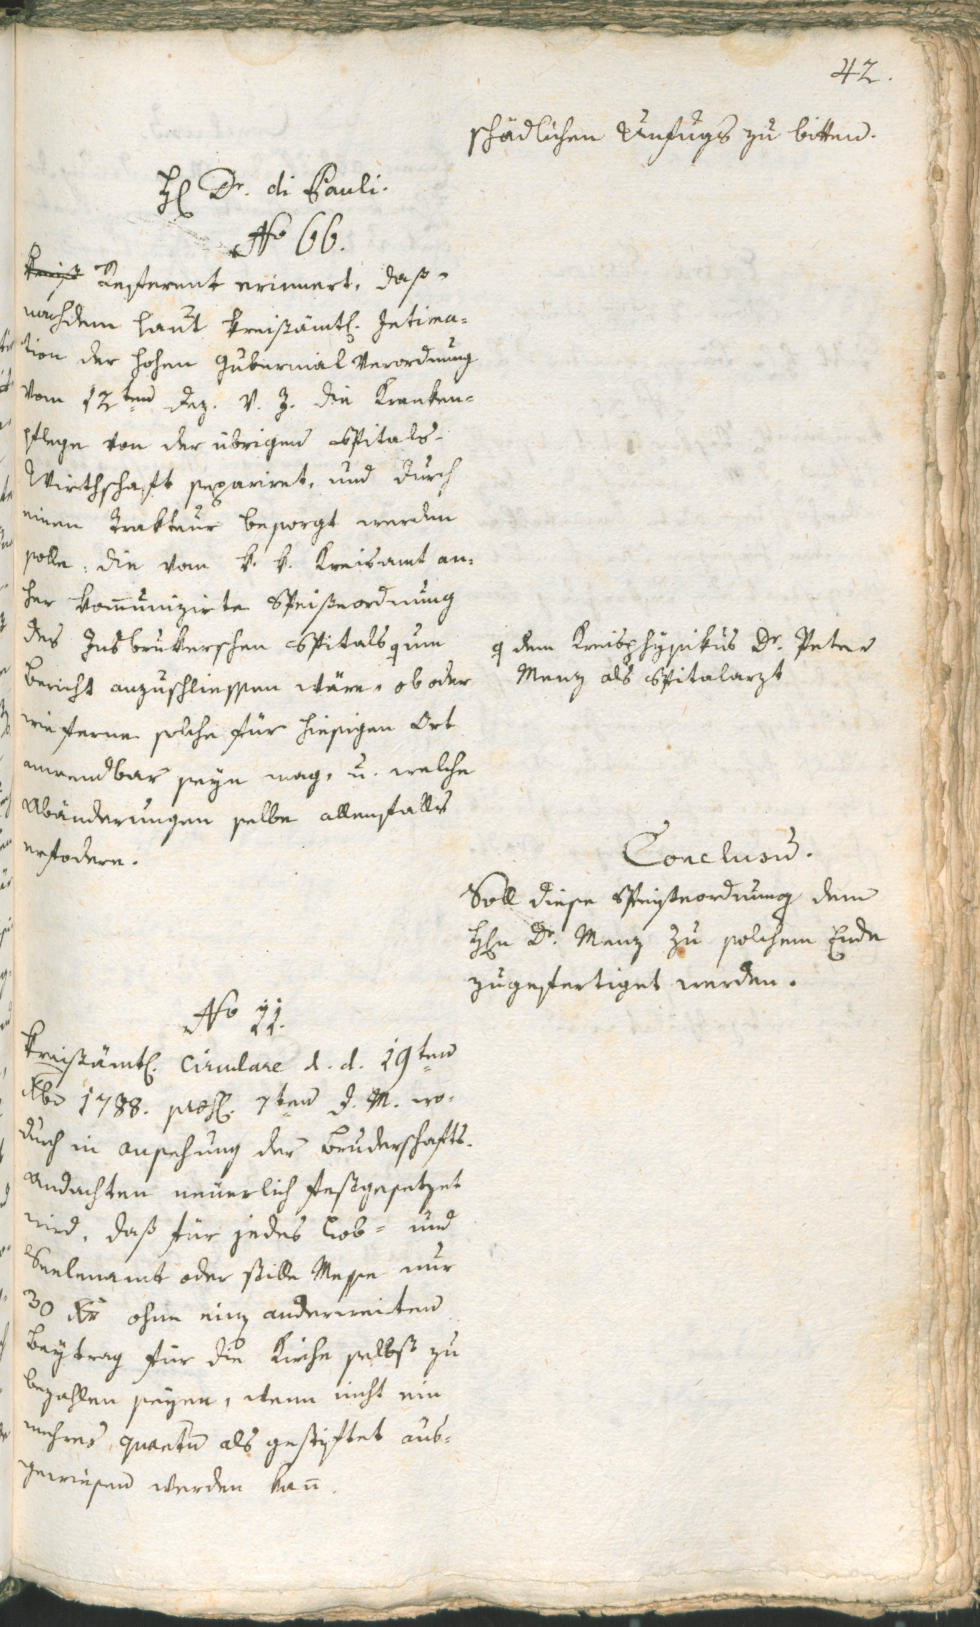 42.
schädlichen Unfugs zu bitten.
H Dr. di Pauli.
No 66.
Kreiß Referent erinnert, daß
nachdem laut kreißämtl. Intima-
tion der hohen Gubernial Verordnung
vom 12ten Dez. v. J. die Kranken-
pflege von der übrigen Spitals-
Wirthschaft separiret, und durch
einen Trakteur besorgt werden
solle, die vom k. k. Kreisamt an-
her kommunizirte Speißeordnung
des Insbrukerschen Spitals zum
Bericht anzuschliessen wäre, ob oder
wie ferne solche für hiesigen Ort
anwendbar seyn mag, u. welche
Abänderungen selbe allenfalls
erfodere.
dem Kreisphysikus Dr. Peter
Menz als Spitalarzt
Conclusum.
Soll diese Speißeordnung dem
Hn Dr. Menz zu solchem Ende
zugefertiget werden.
No 11.
kreißämtl. Circulare d. d. 19ten
Xbr 1788. præs. 7ten d. M. wo-
durch in ansehung der Bruderschafts-
Andachten neuerlich festgesetzet
wird, daß für jedes Lob- und
Seelenamt oder stille Messe nur
30 Xr ohne einz anderweiten
Beytrag für die Kirche selbst zu
bezahlen seyen, wenn nicht ein
mehres quantum als gestiftet aus-
gewiesen werden kann.